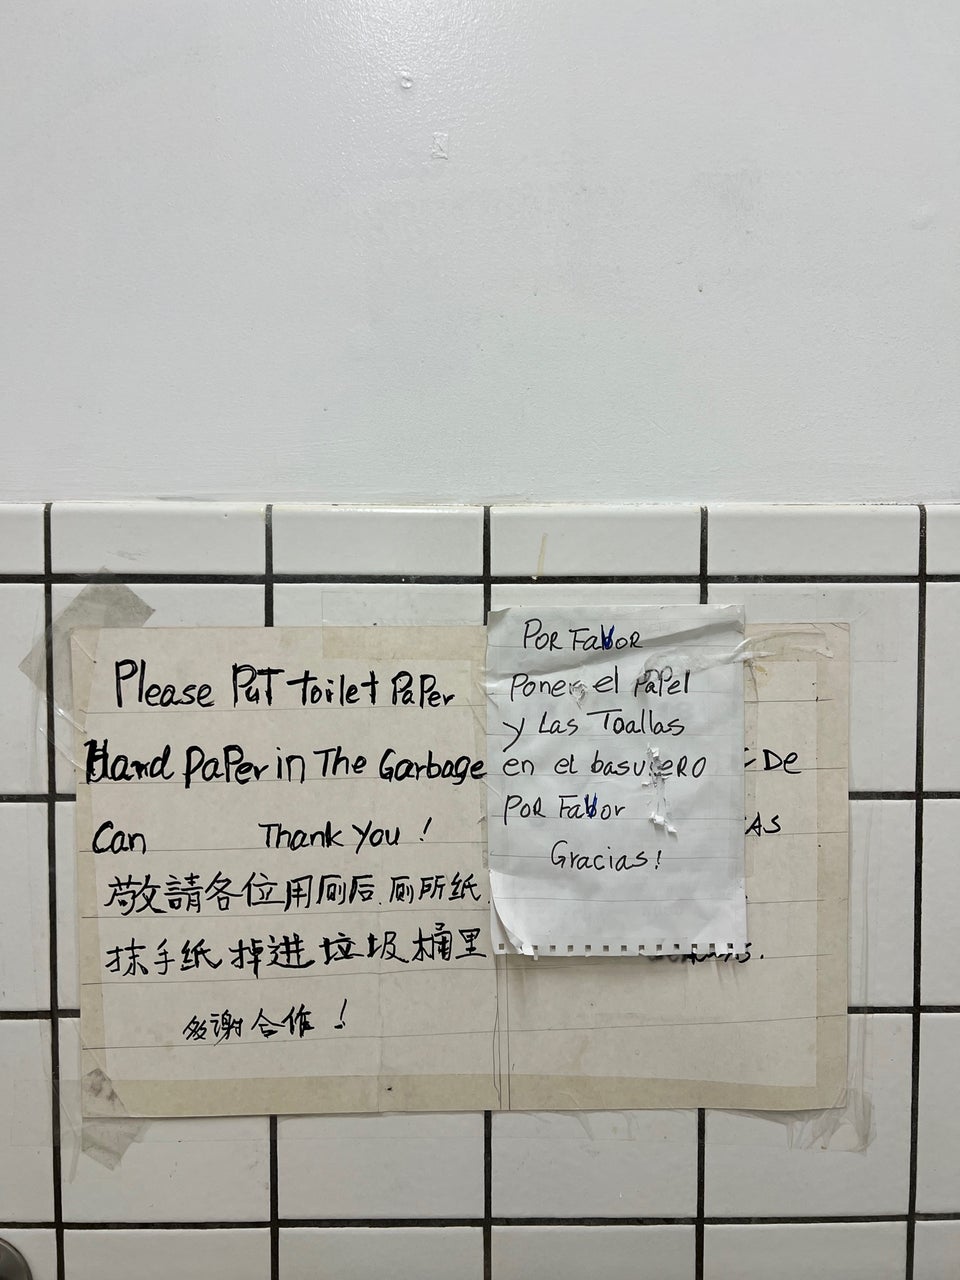 Please PuT toilet PaPer
Hand PaPer in The Garbage
Can Thank You !
敬請各位用厠后.厠所纸
抹手纸掉进垃圾桶里
多谢合作！
POR FaVOR
Poner el PaPel
y Las Toallas
en el basureRO
POR FaVor
Gracias!
De
AS